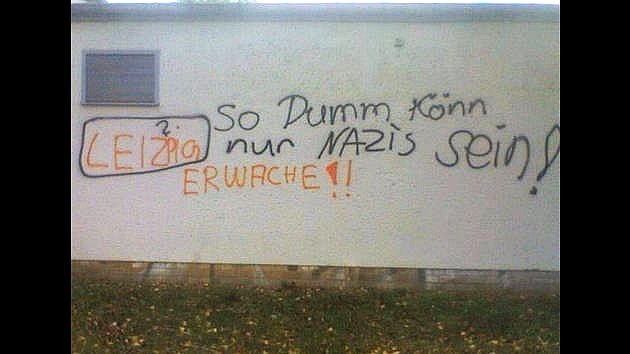 So Dumm könn
LEIZPiG nur NAZiS sein!
ERWACHE!!